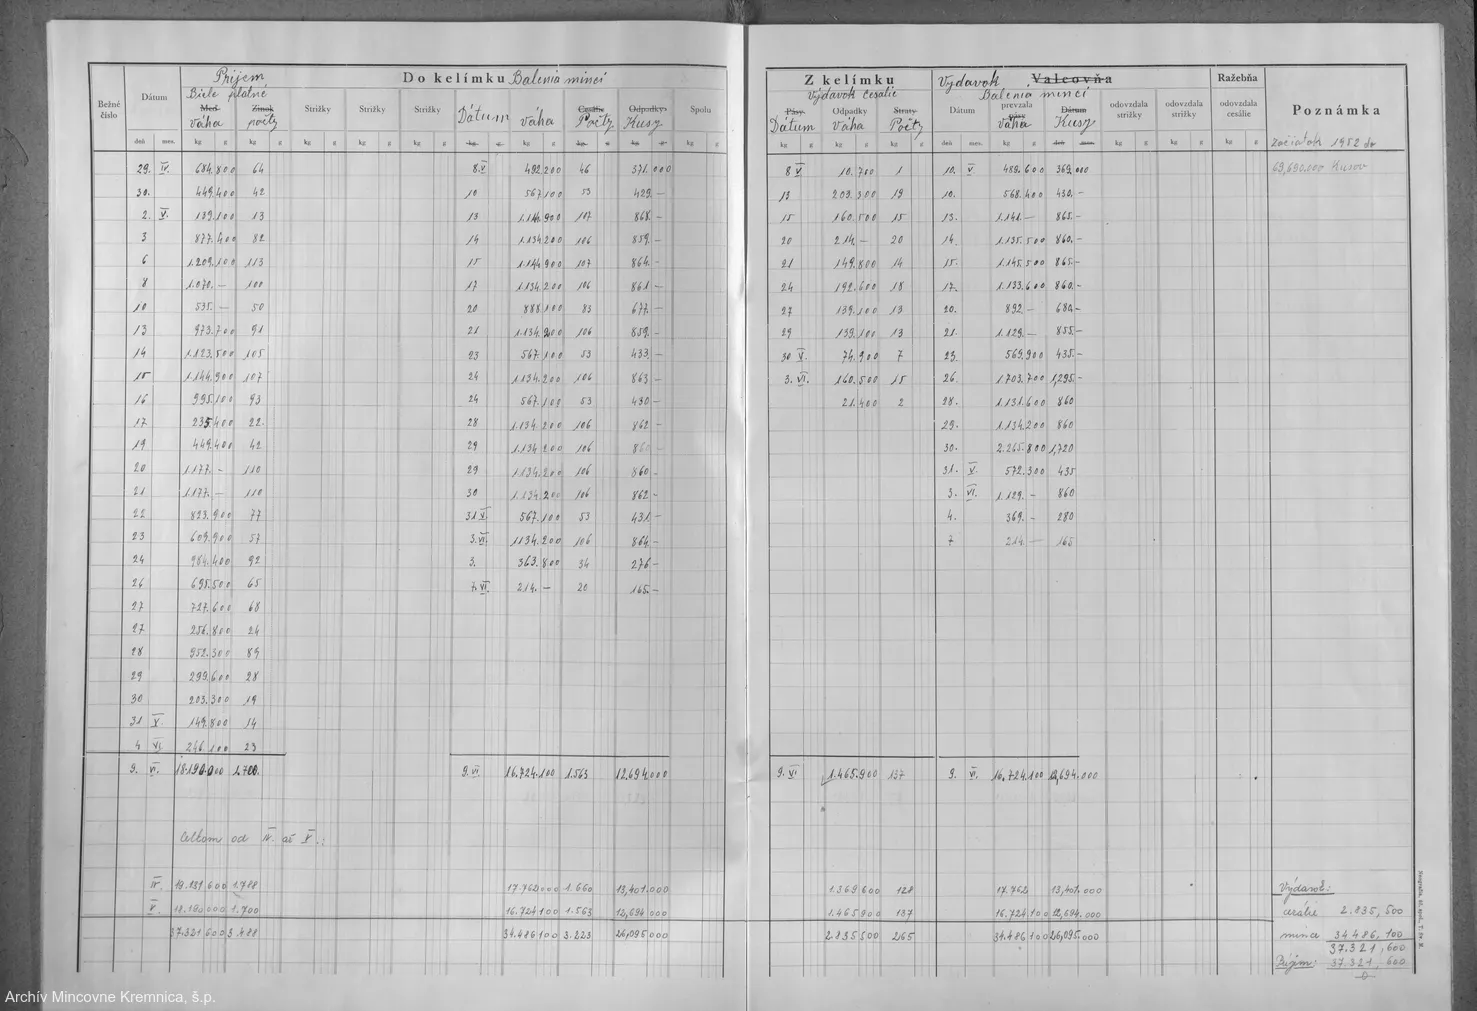 Príjem Do kelímku Balenia mincí
Bežné číslo Dátum Biele platné Strižky Strižky Strižky Dátum váha Cesálie Počty Odpadky Kusy Spolu
Meď váha Zinok počty
deň mes. kg g kg g kg g kg g kg g kg g kg g kg g kg g kg g
29. IV. 684.800 64 8.V 492.200 46 371.000
30. 449.400 42 10 567.100 53 429.—
2. V. 139.100 13 13 1.144.900 107 868.—
3 877.400 82 14 1.134.200 106 859.—
6 1.209.100 113 15 1.144.900 107 864.—
8 1.070.— 100 17 1.134.200 106 861.—
10 535.— 50 20 888.100 83 677.—
13 973.700 91 21 1.134.200 106 859.—
14 1.123.500 105 23 567.100 53 433.—
15 1.144.900 107 24 1.134.200 106 863.—
16 995.100 93 24 567.100 53 430.—
17 235.400 22. 28 1.134.200 106 862.—
19 449.400 42 29 1.134.200 106 860.—
20 1.177.— 110 29 1.134.200 106 860.—
21 1.177.— 110 30 1.134.200 106 862.—
22 823.900 77 31 V. 567.100 53 431.—
23 609.900 57 3. VI. 1134.200 106 864.—
24 984.400 92 3. 363.800 34 276.—
26 695.500 65 7. VI. 214.— 20 165.—
27 727.600 68
27 256.800 24
28 952.300 89
29 299.600 28
30 203.300 19
31 V. 149.800 14
4 VI. 246.100 23
9. VI. 18.190.000 1.700. 9. VI 16.724.100 1.563 12,694.000
Celkom od IV. až V.:
IV. 19.131.600 1.788 17.762.000 1.660 13,401.000
V. 18.190.000 1.700 16.724.100 1.563 12,694.000
37.321.600 3.488 34.486.100 3.223 26,095.000
Z kelímku Výdavok Valcovňa Ražebňa Poznámka
Výdavok cesálie Balenia mincí
Pásy Dátum Odpadky Váha Straty Počty Dátum prevzala pásy váha Dátum Kusy odovzdala strižky odovzdala strižky odovzdala cesálie
kg g kg g kg g deň mes. kg g deň mes. kg g kg g kg g Začiatok 1952 do
8 V 10.700 1 10. V 489.600 369.000 63,690.000 kusov
13 203.300 19 10. 568.400 430.—
15 160.500 15 13. 1.141.— 865.—
20 214.— 20 14. 1.135.500 860.—
21 149.800 14 15. 1.145.500 865.—
24 192.600 18 17. 1.133.600 860.—
27 139.100 13 20. 892.— 680.—
29 139.100 13 21. 1.129.— 855.—
30 V. 74.900 7 23. 569.900 435.—
3. VI. 160.500 15 26. 1.703.700 1,295.—
21.400 2 28. 1.131.600 860
29. 1.134.200 860
30. 2.265.800 1,720
31. V. 572.300 435
3. VI. 1.129.— 860
4. 369.— 280
7 214.— 165
9. VI 1.465.900 137 9. VI. 16.724.100 12,694.000
1.369.600 128 17.762 13,401.000 Výdavok:
1.465.900 137 16.724.100 12,694.000 cesálie 2.835,500
2.835.500 265 34.486.100 26,095.000 mince 34 486,100
37.321,600
Príjem: 37.321,600
0
Archív Mincovne Kremnica, š.p.